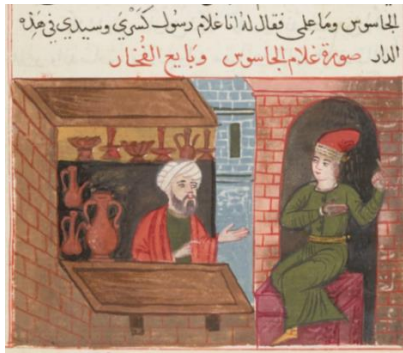 الجاسوس وما على فقال له انا غلام رسول كسرى وسيدي في هذه
الدار صورة غلام الجاسوس وبايع الفخار